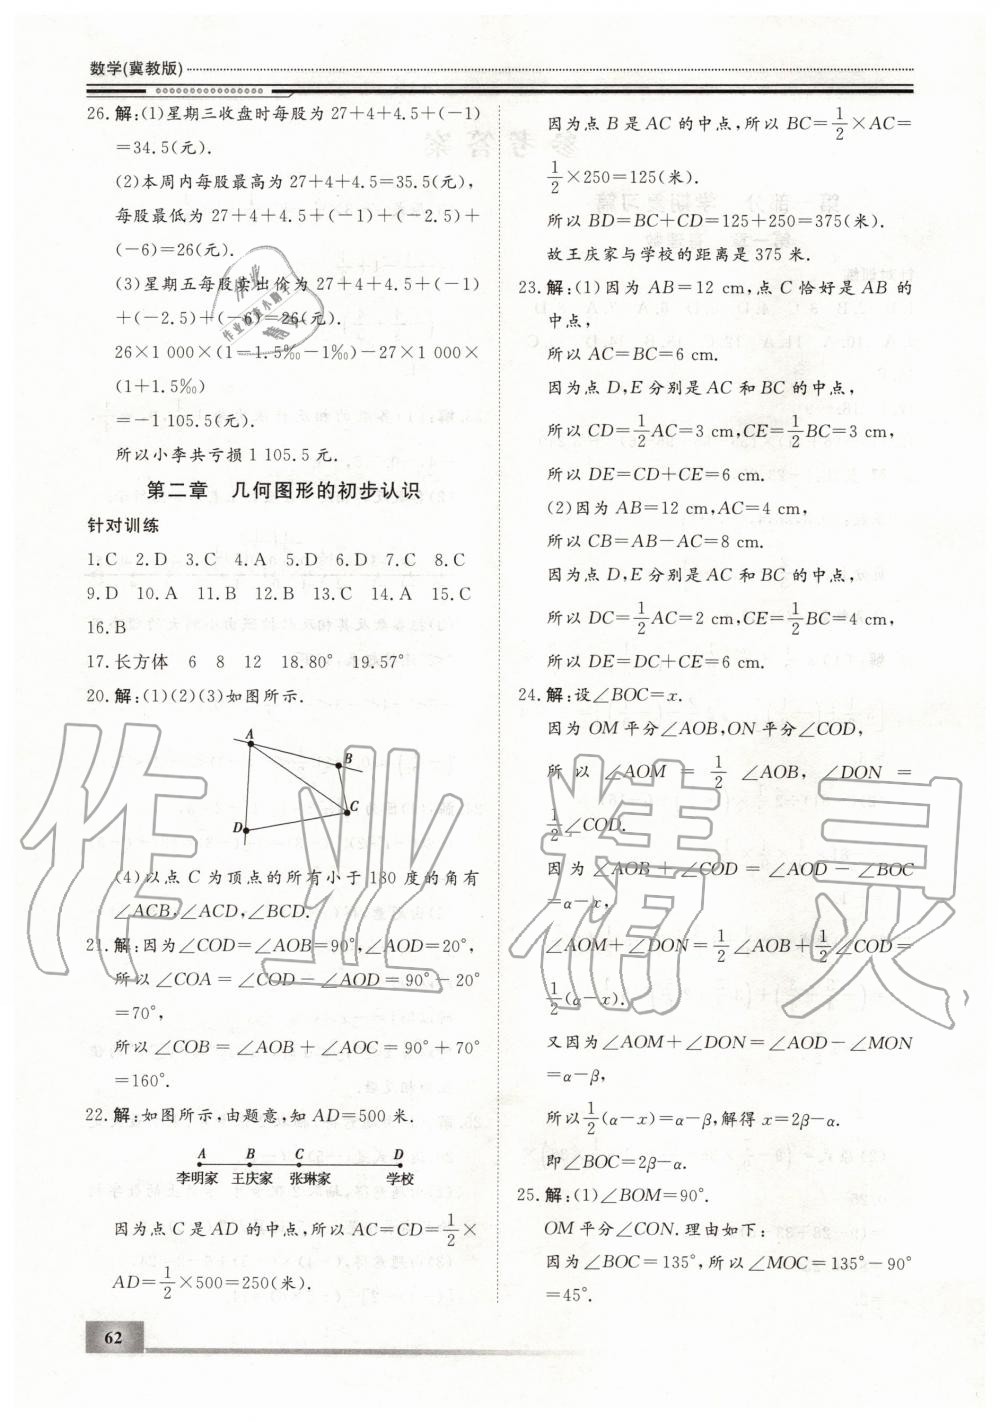 数学(冀教版)
26.解:(1)星期三收盘时每股为 27+4+4.5+(-1)
=34.5(元).
(2)本周内每股最高为 27+4+4.5=35.5(元),
每股最低为 27+4+4.5+(-1)+(-2.5)+
(-6)=26(元).
(3)星期五每股卖出价为 27+4+4.5+(-1)
+(-2.5)+(-6)=26(元).
26×1 000×(1-1.5‰-1‰)-27×1 000×
(1+1.5‰)
=-1 105.5(元).
所以小李共亏损 1 105.5 元.
第二章 几何图形的初步认识
针对训练
1.C 2.D 3.C 4.A 5.D 6.D 7.C 8.C
9.D 10.A 11.B 12.B 13.C 14.A 15.C
16.B
17.长方体 6 8 12 18.80° 19.57°
20.解:(1)(2)(3)如图所示.
A
B
C
D
(4)以点 C 为顶点的所有小于 180 度的角有
∠ACB,∠ACD,∠BCD.
21.解:因为∠COD=∠AOB=90°,∠AOD=20°,
所以∠COA=∠COD-∠AOD=90°-20°
=70°,
所以∠COB=∠AOB+∠AOC=90°+70°
=160°.
22.解:如图所示,由题意,知 AD=500 米.
A B C D
李明家 王庆家 张琳家 学校
因为点 C 是 AD 的中点,所以 AC=CD=1/2×
AD=1/2×500=250(米).
因为点 B 是 AC 的中点,所以 BC=1/2×AC=
1/2×250=125(米).
所以 BD=BC+CD=125+250=375(米).
故王庆家与学校的距离是 375 米.
23.解:(1)因为 AB=12 cm,点 C 恰好是 AB 的
中点,
所以 AC=BC=6 cm.
因为点 D,E 分别是 AC 和 BC 的中点,
所以 CD=1/2AC=3 cm,CE=1/2BC=3 cm,
所以 DE=CD+CE=6 cm.
(2)因为 AB=12 cm,AC=4 cm,
所以 CB=AB-AC=8 cm.
因为点 D,E 分别是 AC 和 BC 的中点,
所以 DC=1/2AC=2 cm,CE=1/2BC=4 cm,
所以 DE=DC+CE=6 cm.
24.解:设∠BOC=x.
因为 OM 平分∠AOB,ON 平分∠COD,
所以∠AOM=1/2∠AOB,∠DON=
1/2∠COD.
因为∠AOB+∠COD=∠AOD-∠BOC
=α-x,
∠AOM+∠DON=1/2∠AOB+1/2∠COD=
1/2(α-x).
又因为∠AOM+∠DON=∠AOD-∠MON
=α-β,
所以1/2(α-x)=α-β,解得 x=2β-α.
即∠BOC=2β-α.
25.解:(1)∠BOM=90°.
OM 平分∠CON.理由如下:
因为∠BOC=135°,所以∠MOC=135°-90°
=45°.
62
作业精灵